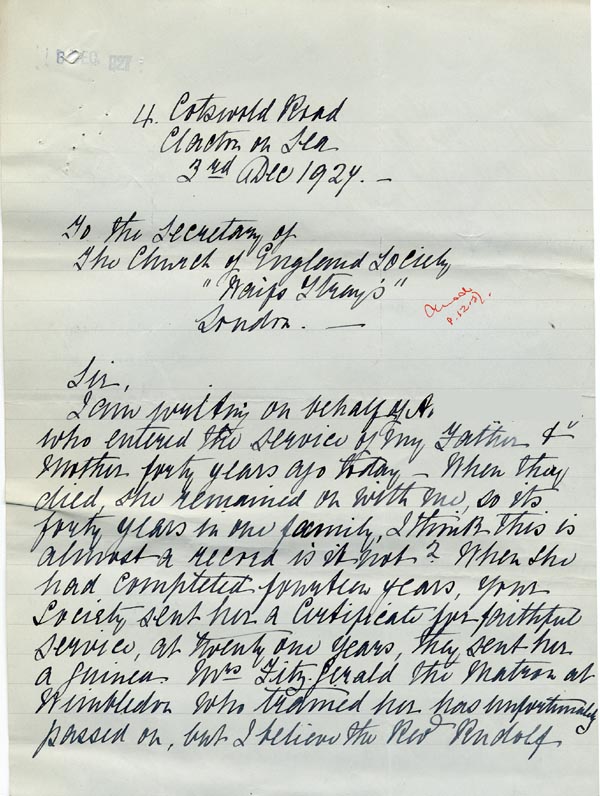 DEC 1927
4. Cotswold Road
Clacton on Sea
3rd Dec 1927. —
To the Secretary of
The Church of England Society
"Waifs & Stray's"
London. —
8.12.27.
Sir,
I am writing on behalf of A.
who entered the service of my Father &
Mother forty years ago today – When they
died, she remained on with me, so its
forty years in one family, I think this is
almost a record is it not? When she
had completed fourteen years, your
Society sent her a Certificate for faithful
service, at twenty one years, they sent her
a guinea. Mrs FitzGerald the Matron at
Wimbledon who trained her has unfortunately
passed on, but I believe the Revd Rudolf